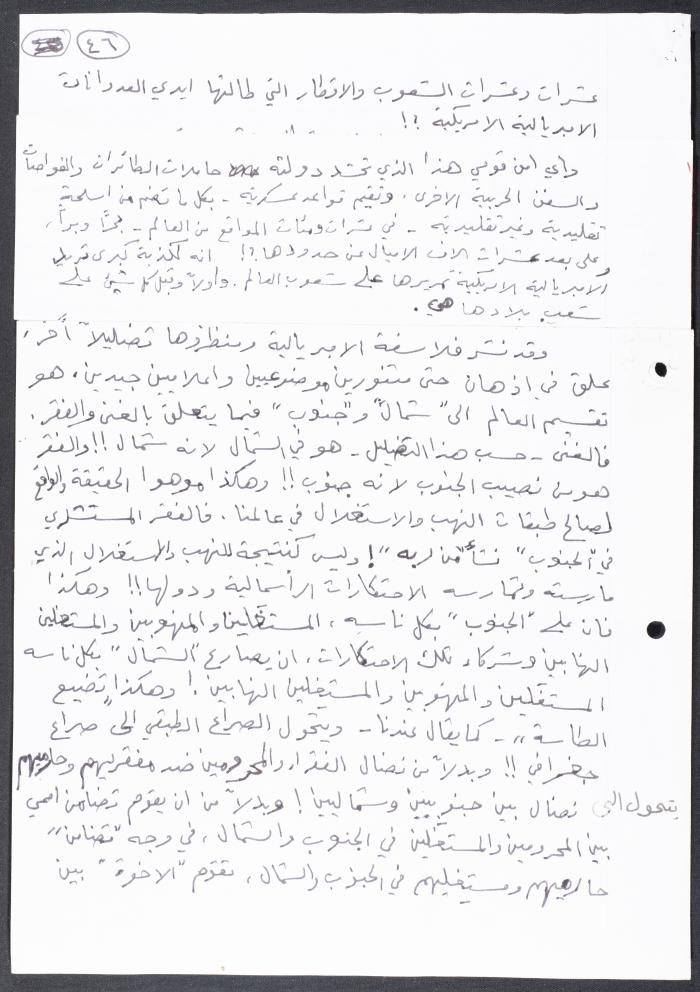 ٤٦
عشرات وعشرات الشعوب والاقطار التي طالتها ايدي العدوانات
الامبريالية الامريكية ؟!
واي امن قومي هذا الذي تحتشد دولته حاملات الطائرات والغواصات
والسفن الحربية الاخرى . وتقيم قواعد عسكرية - بكل ما تضم من اسلحة
تقليدية وغير تقليدية - في عشرات ومئات المواقع من العالم - بحراً وبراً ،
وعلى بعد عشرات الاف الاميال عن حدودها ؟! انه لكذبة كبرى تريد
الامبريالية الامريكية تمريرها على شعوب العالم . واولاً وقبل كل شيئ على
شعب بلادها هي .
وقد نشر فلاسفة الامبريالية ومنظروها تضليلاً آخر ،
علق في اذهان حتى متنورين موضوعيين واعلاميين جيدين ، هو
تقسيم العالم الى "شمال" و"جنوب" فيما يتعلق بالغنى والفقر .
فالغنى - حسب هذا التضليل - هو في الشمال لانه شمال !! والفقر
هو من نصيب الجنوب لانه جنوب !! وهكذا موهوا الحقيقة والواقع
لصالح طبقات النهب والاستغلال في عالمنا . فالفقر المستشري
في "الجنوب" نشأ "من ربه" ! وليس كنتيجة للنهب والاستغلال الذي
مارسته وتمارسه الاحتكارات الرأسمالية ودولها !! وهكذا
فان على "الجنوب" بكل ناسه ، المستغَلين والمنهوبين والمستغلين
النهابين وشركاء تلك الاحتكارات ، ان يصارع "الشمال" بكل ناسه
المستغَلين والمنهوبين والمستغِلين النهابين ! وهكذا "تضيع
الطاسة" - كما يقال عندنا - ويتحول الصراع الطبقي الى صراع
جغرافي !! وبدلاً من نضال الفقراء والمحرومين ضد مفقريهم وحارميهم
يتحول الى نضال بين جنوبيين وشماليين ! وبدلاً من ان يقوم تضامن اممي
بين المحرومين والمستغَلين في الجنوب والشمال ، في وجه "تضامن"
حارميهم ومستغليهم في الجنوب والشمال ، تقوم "الاخوة" بين